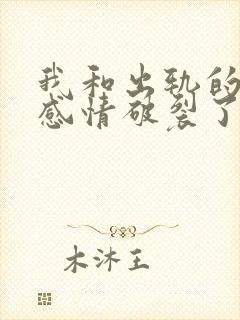 我和出轨的
感情破裂了
木沐王